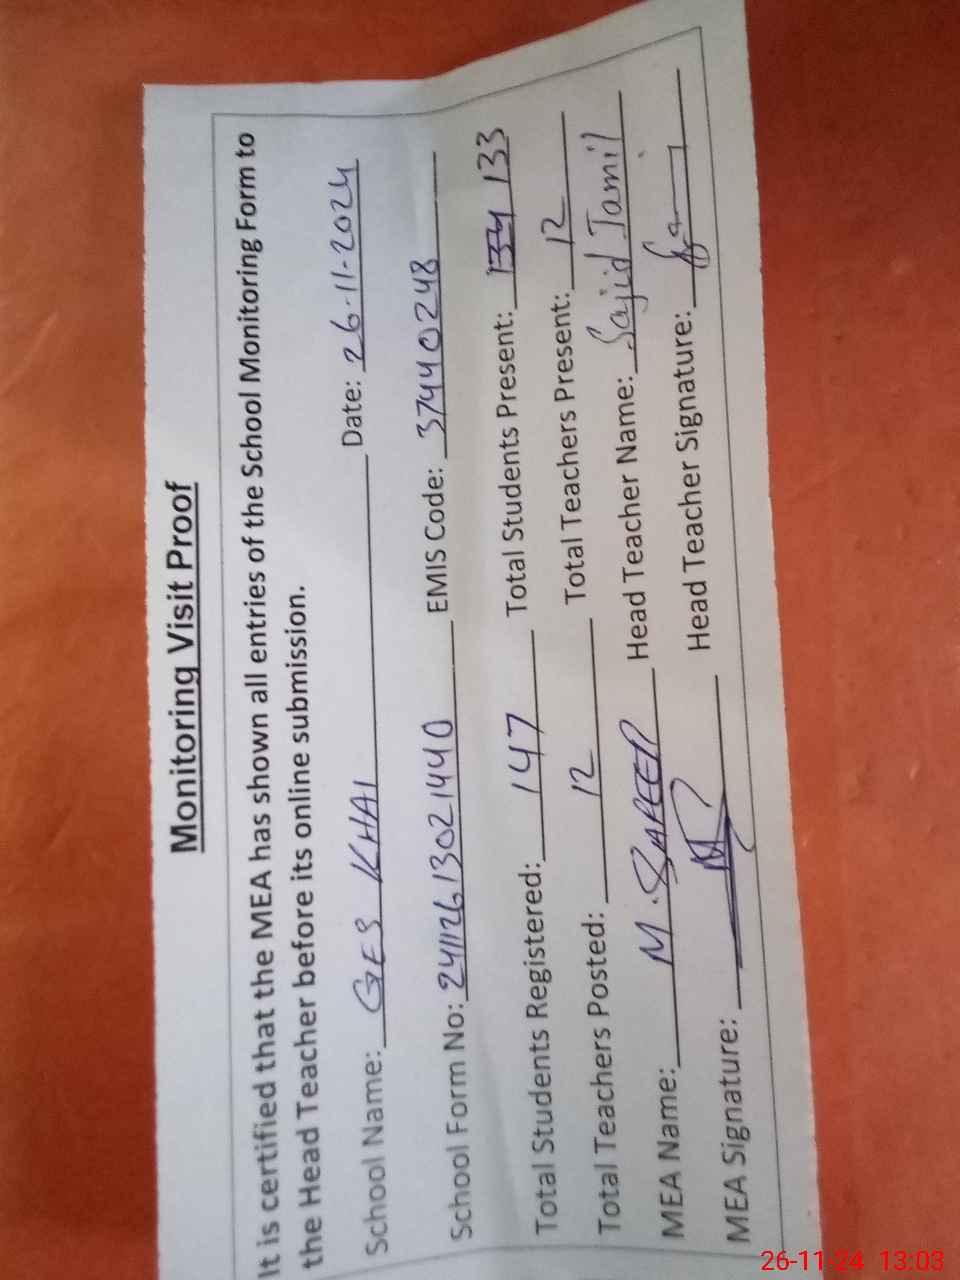 Monitoring Visit Proof
It is certified that the MEA has shown all entries of the School Monitoring Form to
the Head Teacher before its online submission.
School Name: GES KHAI Date: 26-11-2024
School Form No: 24112613021440 EMIS Code: 37440248
Total Students Registered: 147 Total Students Present: 134 133
Total Teachers Posted: 12 Total Teachers Present: 12
MEA Name: M. Head Teacher Name: Sajid Jamil
MEA Signature: Head Teacher Signature:
26-11-24 13:03